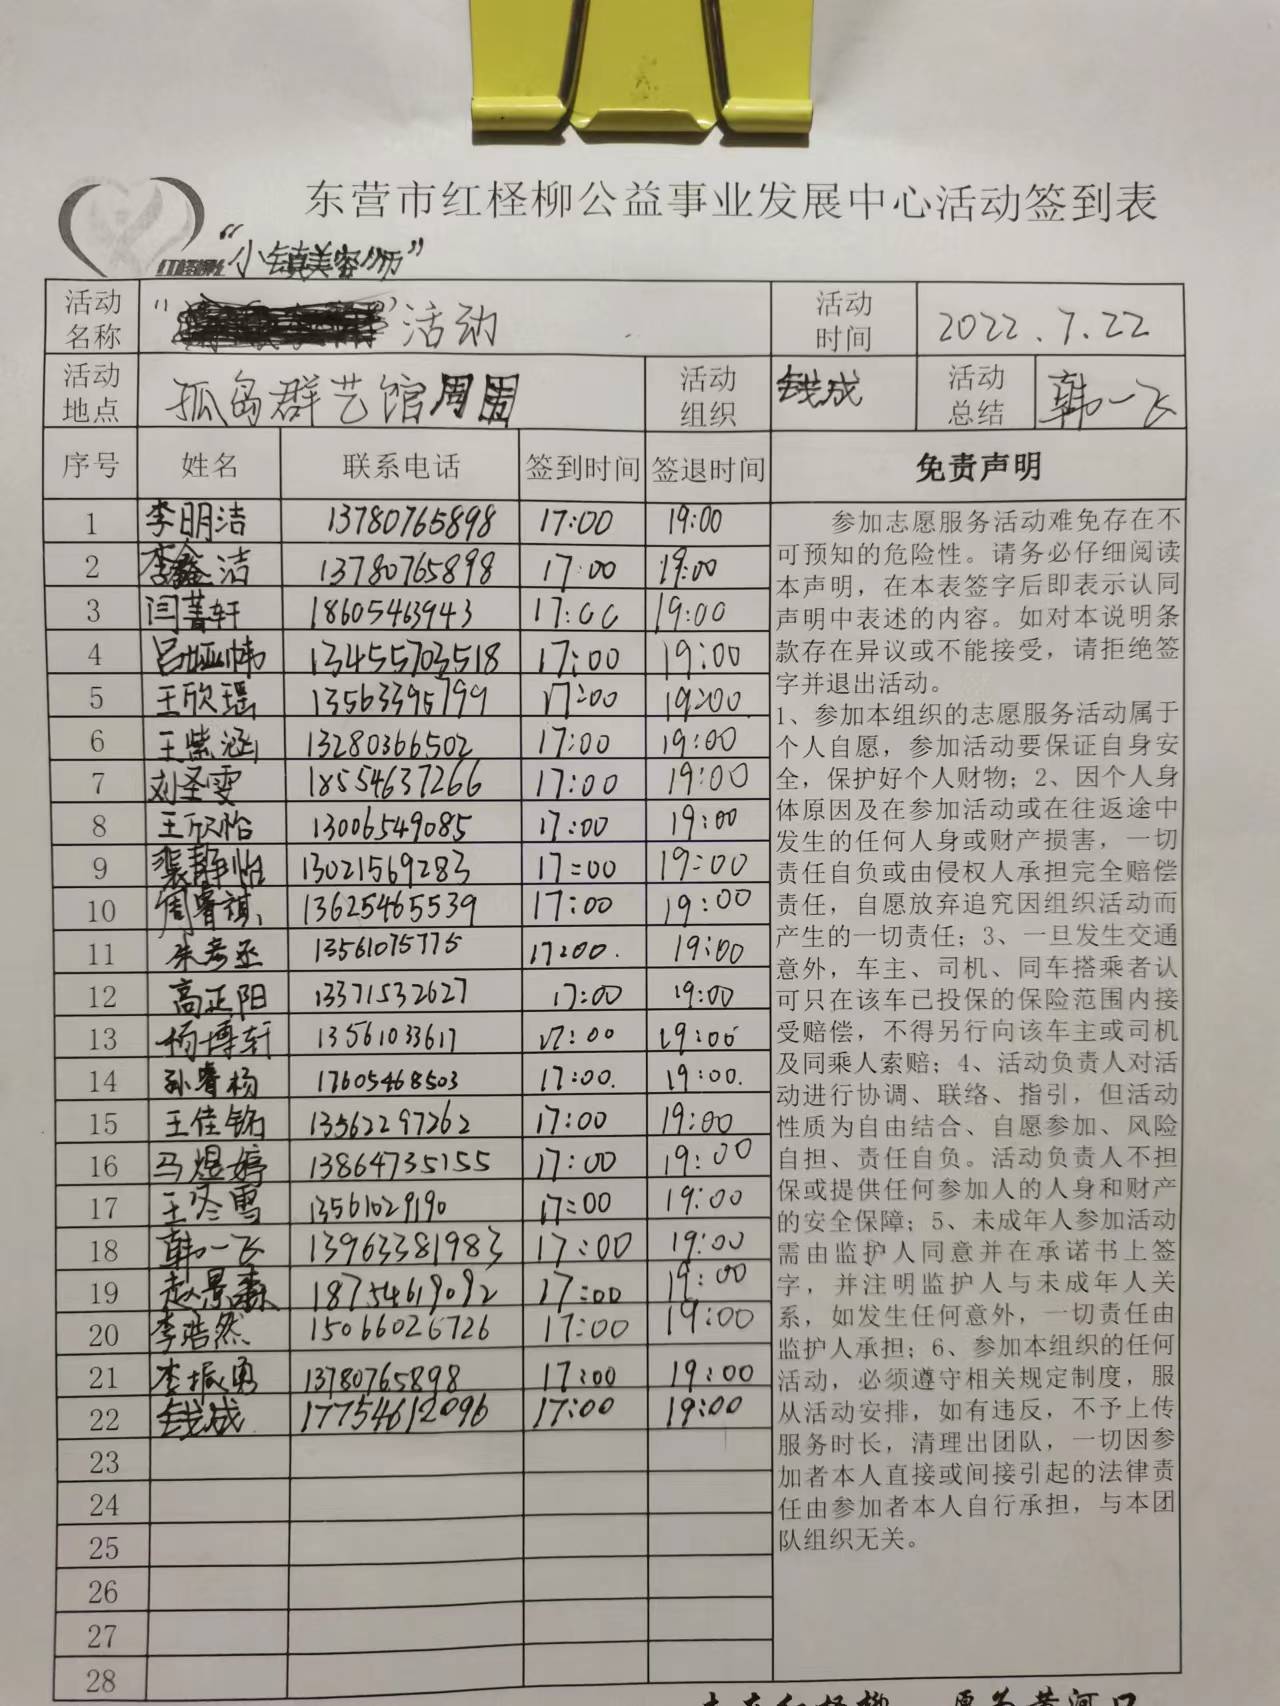 东营市红柽柳公益事业发展中心活动签到表
红柽柳
“小镇美容师”
活动名称 “ ”活动 活动时间 2022.7.22
活动地点 孤岛群艺馆周围 活动组织 钱成 活动总结 韩一飞
序号 姓名 联系电话 签到时间 签退时间 免责声明
1 李明洁 13780765898 17:00 19:00
2 李鑫洁 13780765898 17:00 19:00
3 闫菩轩 18605463943 17:00 19:00
4 吕垭帏 13455703518 17:00 19:00
5 王欣瑶 13563395799 17:00 19:00
6 王紫涵 13280366502 17:00 19:00
7 刘圣雯 18554637266 17:00 19:00
8 王欣怡 13006549085 17:00 19:00
9 裴静怡 13021569283 17:00 19:00
10 周睿祺 13625465539 17:00 19:00
11 朱彦丞 13561075775 17:00. 19:00
12 高正阳 13371532627 17:00 19:00
13 杨博轩 13561033617 17:00 19:00
14 孙睿杨 17605468503 17:00. 19:00.
15 王佳铭 13562297262 17:00 19:00
16 马煜婷 13864735155 17:00 19:00
17 王冬雪 13561029190 17:00 19:00
18 韩一飞 13963381983 17:00 19:00
19 赵景森 18754619092 17:00 19:00
20 李浩然 15066026726 17:00 19:00
21 李振勇 13780765898 17:00 19:00
22 钱成 17754612096 17:00 19:00
23
24
25
26
27
28
参加志愿服务活动难免存在不
可预知的危险性。请务必仔细阅读
本声明，在本表签字后即表示认同
声明中表述的内容。如对本说明条
款存在异议或不能接受，请拒绝签
字并退出活动。
1、参加本组织的志愿服务活动属于
个人自愿，参加活动要保证自身安
全，保护好个人财物；2、因个人身
体原因及在参加活动或在往返途中
发生的任何人身或财产损害，一切
责任自负或由侵权人承担完全赔偿
责任，自愿放弃追究因组织活动而
产生的一切责任；3、一旦发生交通
意外，车主、司机、同车搭乘者认
可只在该车已投保的保险范围内接
受赔偿，不得另行向该车主或司机
及同乘人索赔；4、活动负责人对活
动进行协调、联络、指引，但活动
性质为自由结合、自愿参加、风险
自担、责任自负。活动负责人不担
保或提供任何参加人的人身和财产
的安全保障；5、未成年人参加活动
需由监护人同意并在承诺书上签
字，并注明监护人与未成年人关
系，如发生任何意外，一切责任由
监护人承担；6、参加本组织的任何
活动，必须遵守相关规定制度，服
从活动安排，如有违反，不予上传
服务时长，清理出团队，一切因参
加者本人直接或间接引起的法律责
任由参加者本人自行承担，与本团
队组织无关。